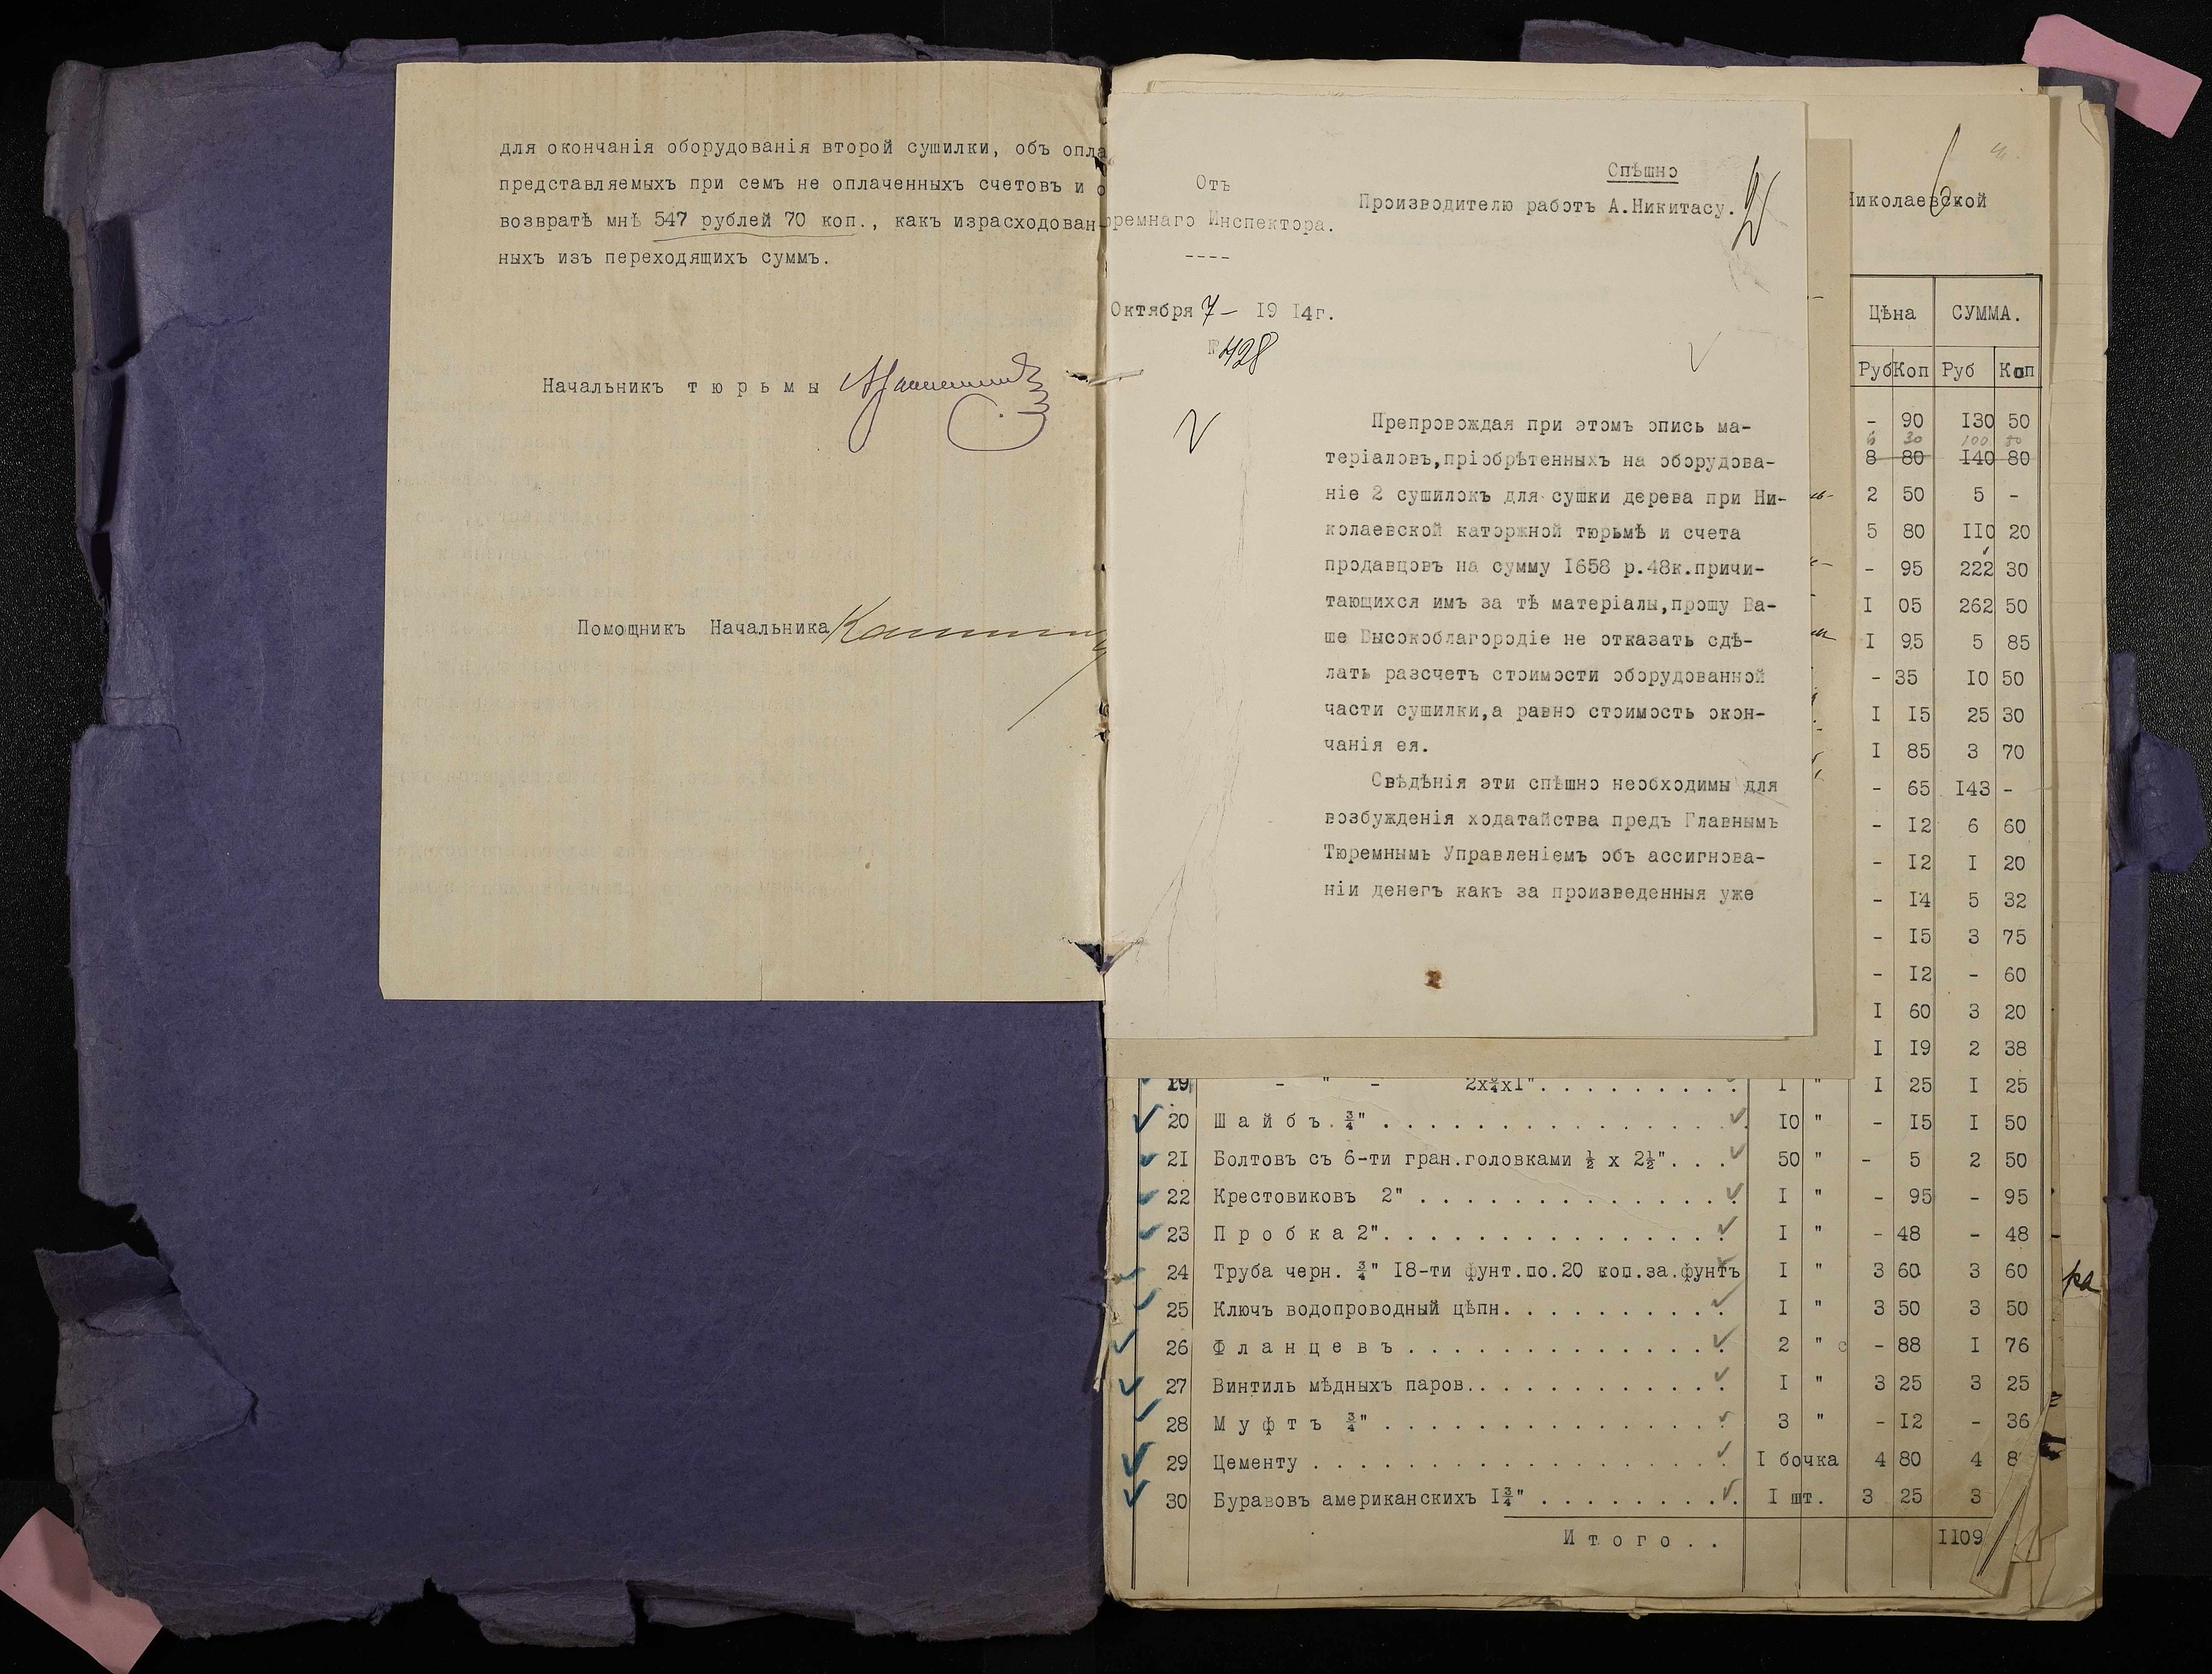 для окончанія оборудованія второй сушилки, объ опла
представляемыхъ при семъ не оплаченныхъ счетовъ и о
возвратѣ мнѣ 547 рублей 70 коп., какъ израсходован-
ныхъ изъ переходящихъ суммъ.
Начальникъ тюрьмы
Помощникъ Начальника
Отъ
ремнаго Инспектора.
----
Октября 7- 1914г.
№ 428
Спѣшно
Производителю работъ А.Никитасу.
Препровождая при этомъ опись ма-
теріаловъ,пріобрѣтенныхъ на оборудова-
ніе 2 сушилокъ для сушки дерева при Ни-
колаевской каторжной тюрьмѣ и счета
продавцовъ на сумму I658 р.48к.причи-
тающихся имъ за тѣ матеріалы,прошу Ва-
ше Высокоблагородіе не отказать сдѣ-
лать разсчетъ стоимости оборудованной
части сушилки,а равно стоимость окон-
чанія ея.
Свѣдѣнія эти спѣшно необходимы для
возбужденія ходатайства предъ Главнымъ
Тюремнымъ Управленіемъ объ ассигнова-
ніи денегъ какъ за произведенныя уже
Николаевской
Цѣна СУММА.
Руб Коп Руб Коп
- 90 I30 50
6 30 100 80
8 80 I40 80
2 50 5 -
5 80 II0 20
- 95 222 30
I 05 262 50
I 95 5 85
- 35 I0 50
I I5 25 30
I 85 3 70
- 65 I43 -
- I2 6 60
- I2 I 20
- I4 5 32
- I5 3 75
- I2 - 60
I 60 3 20
I I9 2 38
19 - " - 2х¾хI". . . . . . . . . I " I 25 I 25
20 Шайбъ ¾" . . . . . . . . . . . . . . . I0 " - I5 I 50
2I Болтовъ съ 6-ти гран.головками ½ х 2½". . . 50 " - 5 2 50
22 Крестовиковъ 2" . . . . . . . . . . . . . I " - 95 - 95
23 Пробка 2". . . . . . . . . . . . . . . I " - 48 - 48
24 Труба черн. ¾" I8-ти фунт.по.20 коп.за.фунтъ I " 3 60 3 60
25 Ключъ водопроводный цѣпн. . . . . . . . . . I " 3 50 3 50
26 Фланцевъ . . . . . . . . . . . . . . 2 " - 88 I 76
27 Винтиль мѣдныхъ паров.. . . . . . . . . . . I " 3 25 3 25
28 Муфтъ ¾" . . . . . . . . . . . . . . . 3 " - I2 - 36
29 Цементу . . . . . . . . . . . . . . . . . . I бочка 4 80 4 8
30 Буравовъ американскихъ I¾" . . . . . . . . . I шт. 3 25 3
Итого. . II09
ра